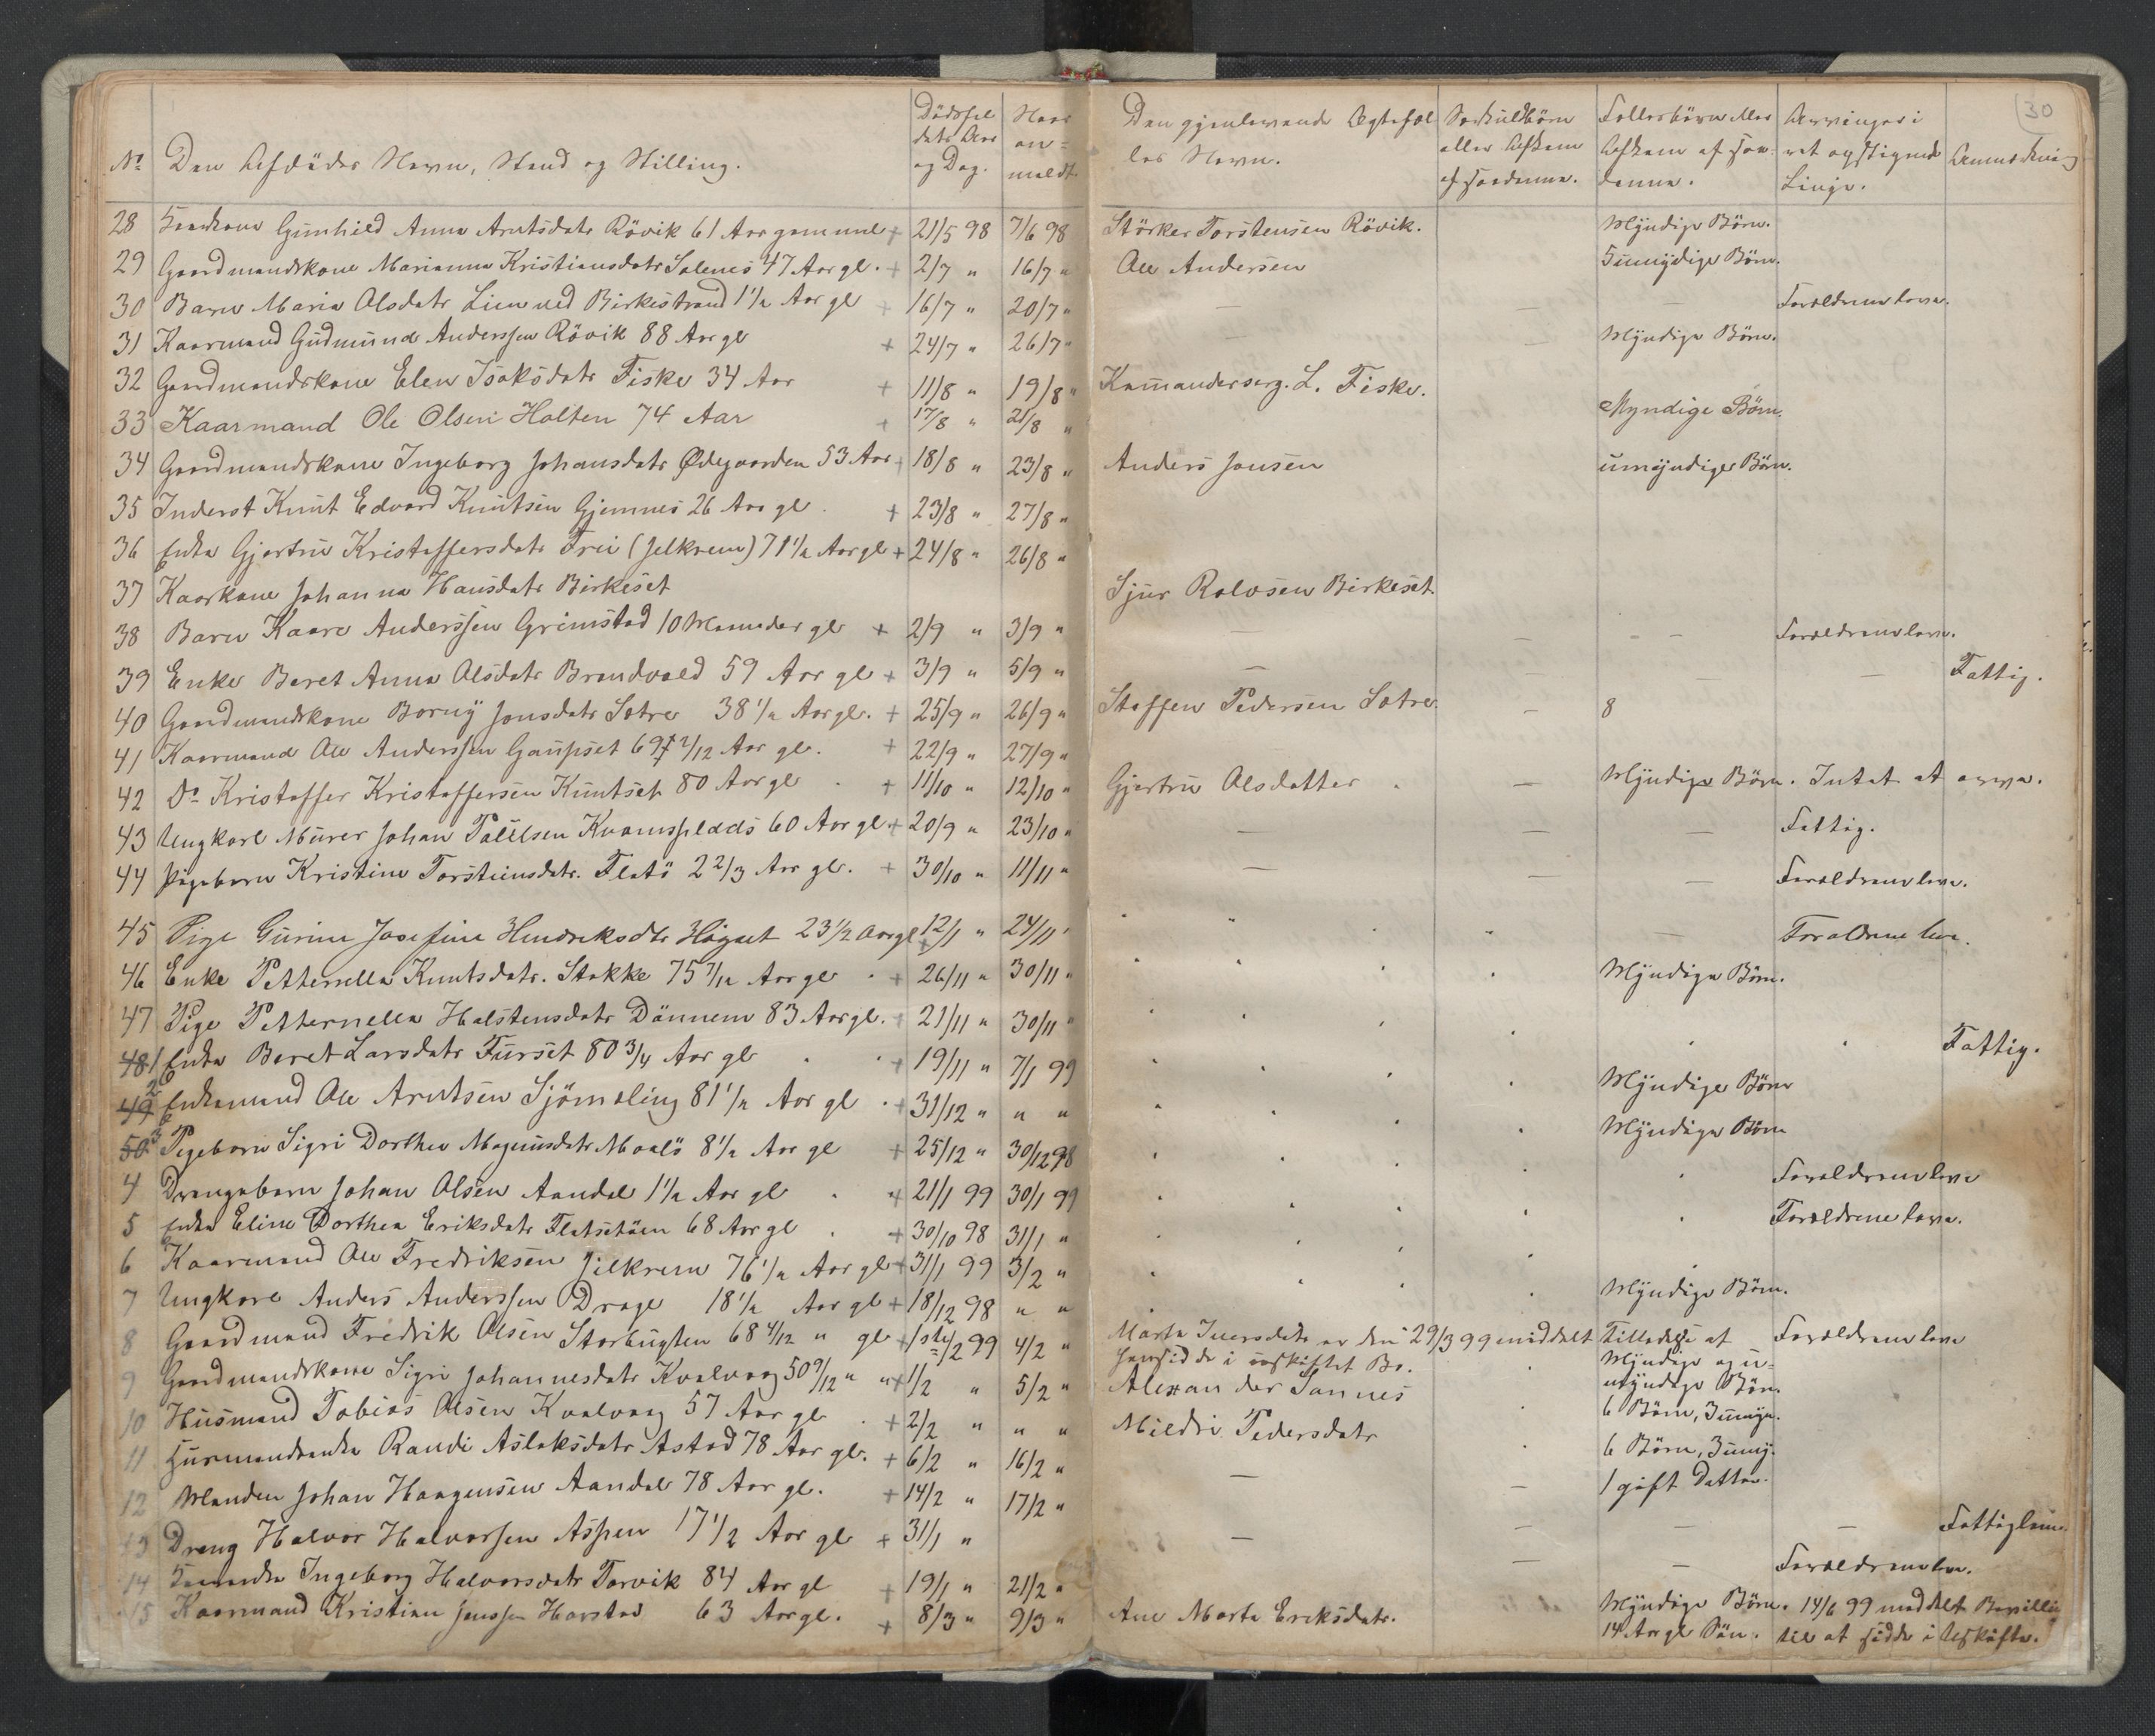 30
No Den Afdødes Navn, Stand og Stilling. Dødsfaldets Aar og Dag. Naar anmeldt. Den gjenlevende Ægtefælles Navn. Særkuldbørn eller Afkom af saadanne. Fællesbørn eller Afkom af saadanne. Arvinger i ret opstigende Linje. Anmerkning
28 Gunhild Anna Arntsdatr Rövik 61 Aar gammel + 21/5 98 7/6 98 Störker Torstensen Rövik. Myndige Börn.
29 Gaardmandskone Marianna Kristiansdatr Solenes 47 Aar gl. + 2/7 " 16/7 " Ole Andersen 5 umyndige Börn.
30 Barn Maria Olsdatr Lien ved Birkestrand 1 1/2 Aar gl + 16/7 " 20/7 " — — — Forældrene leve.
31 Kaarmand Gudmund Anderssen Rövik 88 Aar gl + 24/7 " 26/7 " — — Myndige Börn.
32 Gaardmandskone Elen Isaksdatr Fiske 34 Aar + 11/8 " 19/8 " Kommanderserg. L. Fiske.
33 Kaarmand Ole Olsen Holten 74 Aar + 17/8 " 21/8 " Myndige Börn.
34 Gaardmandskone Ingeborg Johansdatr Ødegaarden 53 Aar + 18/8 " 23/8 " Anders Jonsen umyndige Börn.
35 Inderst Knut Edvard Knutsen Gjemnes 26 Aar gl + 23/8 " 27/8 "
36 Enke Gjertru Kristoffersdatr Frei (Jelkrem) 71 1/2 Aar gl + 24/8 " 26/8 "
37 Kaarkone Johanna Hansdatr Birkeset Sjur Rolvsen Birkeset
38 Barn Kaare Anderssen Grimstad 10 Maaneder gl + 2/9 " 3/9 " — — — Forældrene leve.
39 Enke Beret Anna Olsdatr Brandvold 59 Aar gl + 3/9 " 5/9 " — — — — Fattig.
40 Gaardmandskone Borny Jonsdatr Sotre 38 1/2 Aar gl. + 25/9 " 26/9 " Steffen Pedersen Sotre — 8
41 Kaarmand Ole Anderssen Gaupset 69 2/12 Aar gl. + 22/9 " 27/9 "
42 Do Kristoffer Kristoffersen Kuntset 80 Aar gl + 11/10 " 12/10 " Gjertru Olsdatter — Myndige Börn. Intet at arve.
43 Ungkarl Murer Johan Paulsen 60 Aar gl + 20/9 " 23/10 " — — — Fattig.
44 Pigebarn Kristine Torsteinsdatr. Flatö 2 2/3 Aar gl. + 30/10 " 11/11 " — — — Forældrene leve.
45 Pige Gurine Josefine Hendreksdtr Högset 23 1/2 Aar gl + 12/1 " 24/11 " — Forældrene leve.
46 Enke Petternella Knutsdatr. Stokke 75 7/12 Aar gl + 26/11 " 30/11 " Myndige Börn.
47 Pige Petternella Halstensdatr Dönnem 83 Aar gl. + 21/11 " 30/11 "
48 1 Enke Beret Larsdatr Furset 80 3/4 Aar gl + 19/11 " 7/1 99 Fattig.
49 2 Enkemand Ole Arntsen Sjömæling 81 1/2 Aar gl + 31/12 " " " Myndige Börn
50 3 Pigebarn Sigri Dorthea Magnusdatr Maalö 8 1/2 Aar gl + 25/12 " 30/12 98 Myndige Börn
4 Drengebarn Johan Olsen Aandal 1 1/2 Aar gl + 21/1 99 30/1 99 Forældrene leve
5 Enke Eline Dorthea Eriksdatr Flatsetöen 68 Aar gl + 30/10 98 31/1 " Forældrene leve.
6 Kaarmand Ole Fredriksen Jelkrem 76 1/2 Aar gl + 31/1 99 3/2 "
7 Ungkarl Anders Anderssen Drage 18 1/2 Aar gl + 18/12 98 " " Myndige Börn.
8 Gaardmand Fredrik Olsen Storbugten 68 4/12 " gl + 1ste/2 99 4/2 " Marta Iversdatr er den 29/3 99 meddelt Tilladelse at Forældrene leve
hensidde i uskiftet Bo. Myndige og u-
9 Gaardmandskone Sigri Johannesdatr Kvalvaag 50 9/12 " " + 1/2 " 5/2 " Alexander Sannes myndige Börn.
10 Husmand Tobias Olsen Kvalvaag 57 Aar gl + 2/2 " " " Mildri Pedersdatr 6 Börn, 3 umyn.
11 Husmandsenke Randi Aslaksdatr Astad 78 Aar gl. + 6/2 " 16/2 " — 6 Börn, 3 umy.
12 Manden Johan Haagensen Aandal 78 Aar gl. + 14/2 " 17/2 " — 1 gift Datter.
13 Dreng Halvor Halvorsen Aspen 17 1/2 Aar gl + 31/1 " — — — — Fattiglem.
14 Ingeborg Halvorsdatr Torvik 84 Aar gl + 19/1 " 21/2 " — — Forældrene leve.
15 Kaarmand Kristian Jenssen Harstad 63 Aar gl. + 8/3 " 9/3 " Ane Marta Eriksdatr. Myndige Börn. 14/6 99 meddelt Bevilling
14 Aar gl Sön. til at sidde i Uskifte.